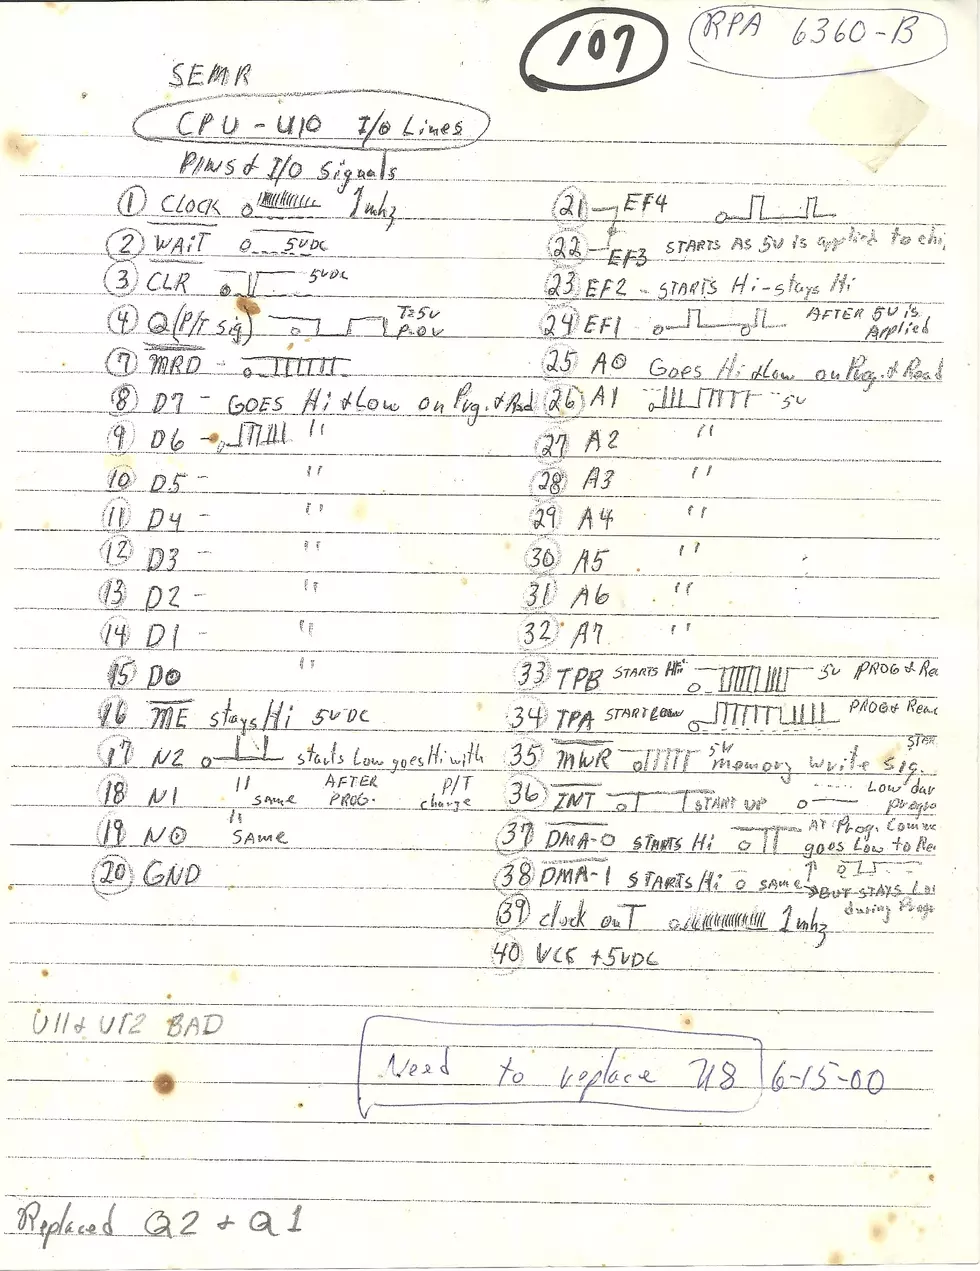 107
RPA 6360-B
SEMR
CPU - U10 I/O Lines
PINS & I/O Signals
1 CLOCK 0 1mhz
2 WAIT 0 5VDC
3 CLR 0 5VDC
4 Q(P/T Sig) T=5V P=0V
7 MRD - 0
8 D7 - GOES Hi & Low on Prg. & Read
9 D6 - 0 "
10 D5 - "
11 D4 - "
12 D3 - "
13 D2 - "
14 D1 - "
15 D0 "
16 ME stays Hi 5VDC
17 N2 0 starts Low goes Hi with
18 N1 " same AFTER PROG. P/T change
19 N0 " SAME
20 GND
21 EF4 0
22 EF3 STARTS AS 5V is applied to chi
23 EF2 - STARTS Hi-stays Hi
24 EF1 0 0 AFTER 5V is Applied
25 A0 Goes Hi & Low on Prg. & Read
26 A1 0 5V
27 A2 "
28 A3 "
29 A4 "
30 A5 "
31 A6 "
32 A7 "
33 TPB STARTS Hi 0 5V PROG & Rea
34 TPA START LOW 0 PROG & Read
35 MWR 0 5V memory write sig. STAR
36 INT 0 START UP 0 Low dur progra
37 DMA-0 STARTS Hi 0 AT Prog. Comm goes Low to Rea
38 DMA-1 STARTS Hi 0 SAME → BUT STAYS Lo during Prog
39 clock out 0 1mhz
40 VCC +5VDC
U11 & U12 BAD
Need to replace U8 6-15-00
Replaced Q2 & Q1